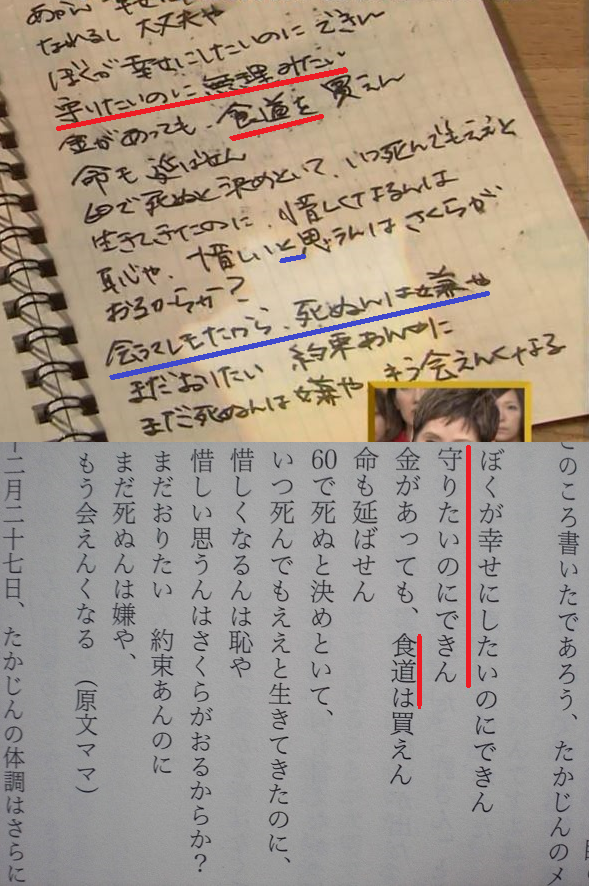 なれるし 大丈夫や
ぼくが幸せにしたいのに できん
守りたいのに 無理みたい
金があっても、食道を 買えん
命も延ばせん
60で死ぬと決めといて、いつ死んでもええと
生きてきたのに、惜しくなるんは
恥や、惜しいと思うんは さくらが
おるからか?
会うてしもたから、死ぬんは嫌や
まだおりたい 約束あんのに
まだ死ぬんは嫌や もう会えんくなる
このころ書いたであろう、たかじんのメ
ぼくが幸せにしたいのにできん
守りたいのにできん
金があっても、食道は買えん
命も延ばせん
60で死ぬと決めといて、
いつ死んでもええと生きてきたのに、
惜しくなるんは恥や
惜しい思うんはさくらがおるからか?
まだおりたい 約束あんのに
まだ死ぬんは嫌や、
もう会えんくなる (原文ママ)
十二月二十七日、たかじんの体調はさらに